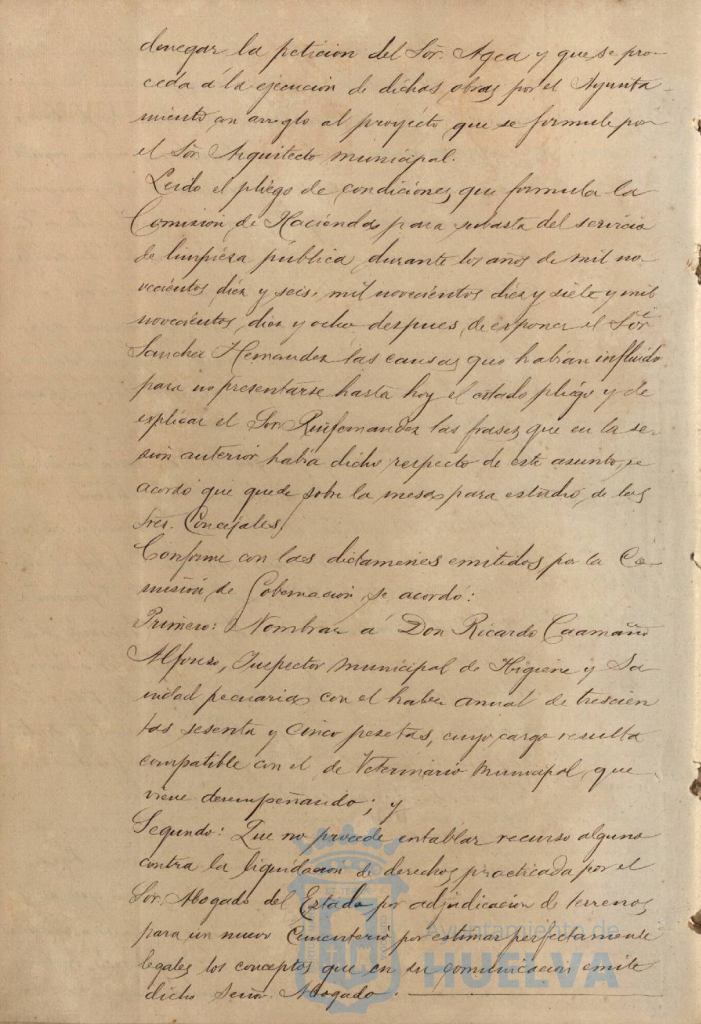 denegar la peticion del Sor. Agea y que se pro-
ceda á la ejecución de dichas obras por el Ayunta
miento con arreglo al proyecto que se formule por
el Sor Arquitecto municipal.
Leido el pliego de condiciones que formula la
Comisión de Hacienda para subasta del servicio
de limpieza pública durante los años de mil no-
vecientos diez y seis, mil novecientos diez y siete y mil
novecientos diez y ocho despues de esponer el Sor
Sanchez Hernandez las causas que habian influido
para no presentarse hasta hoy el citado pliego y de
esplicar el Sor. Ruifernandez las frases que en la se-
sión anterior habia dicho respecto de este asunto, se
acordó que quede sobre la mesa para estudio de los
Sres. Concejales,
Conforme con los dictamenes emitidos por la Co-
misión de Gobernación se acordó:
Primero: Nombrar á Don Ricardo Caamaño
Alfonso, Inspector Municipal de Higiene y Sa
nidad pecuarias con el haber anual de trescien
tas sesenta y cinco pesetas, cuyo cargo resulta
compatible con el de Veterinario Municipal que
viene desempeñando; y
Segundo: Que no procede entablar recurso alguno
contra la liquidacion de derechos practicada por el
Sor. Abogado del Estado por adjudicacion de terrenos
para un nuevo Cementerio por estimar perfectamente
legales los conceptos que en su comunicacion emite
dicho Señor Abogado.
Ayuntamiento de
HUELVA